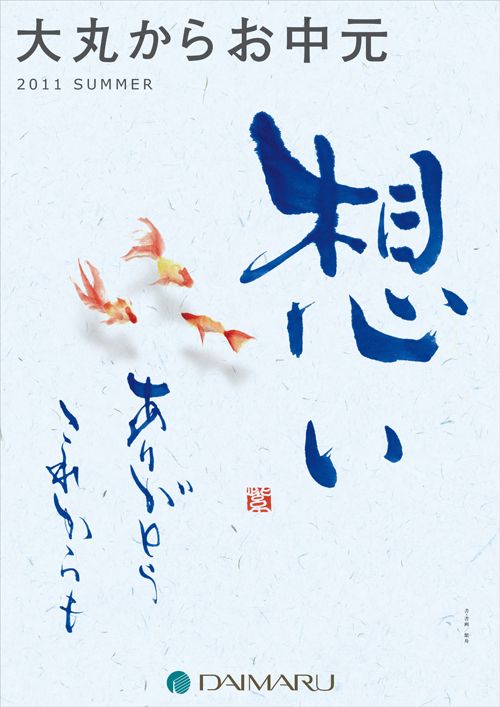 大丸からお中元
2011 SUMMER
想い
ありがとう
これからも
紫
書・書画／紫舟
DAIMARU